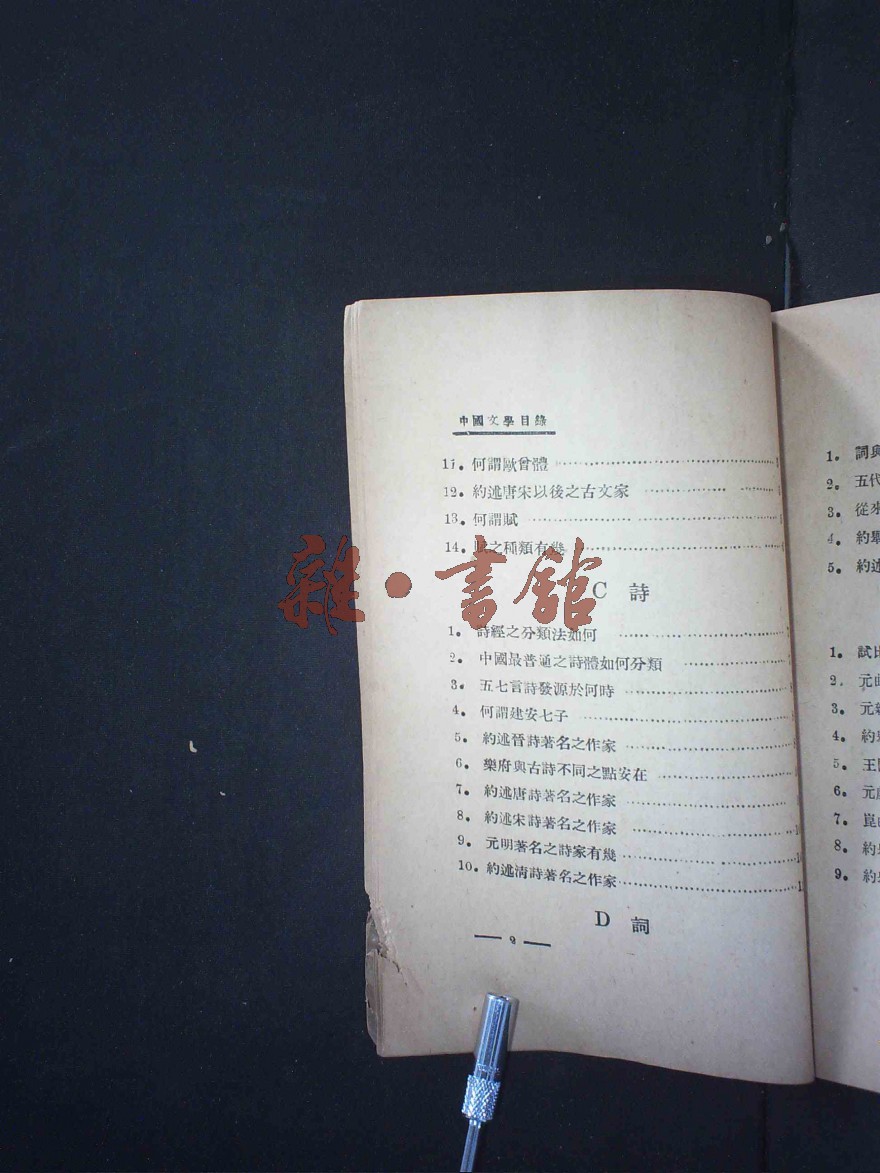 中國文學目錄
11. 何謂歐曾體
12. 約述唐宋以後之古文家
13. 何謂賦
14. 賦之種類有幾
C 詩
1. 詩經之分類法如何
2. 中國最普通之詩體如何分類
3. 五七言詩發源於何時
4. 何謂建安七子
5. 約述晉詩著名之作家
6. 樂府與古詩不同之點安在
7. 約述唐詩著名之作家
8. 約述宋詩著名之作家
9. 元明著名之詩家有幾
10. 約述清詩著名之作家
D 詞
雜·書館
1. 詞與
2. 五代
3. 從來
4. 約舉
5. 約述
1. 試比
2. 元曲
3. 元
4. 約
5. 王
6. 元
7. 崑
8. 約
9. 約